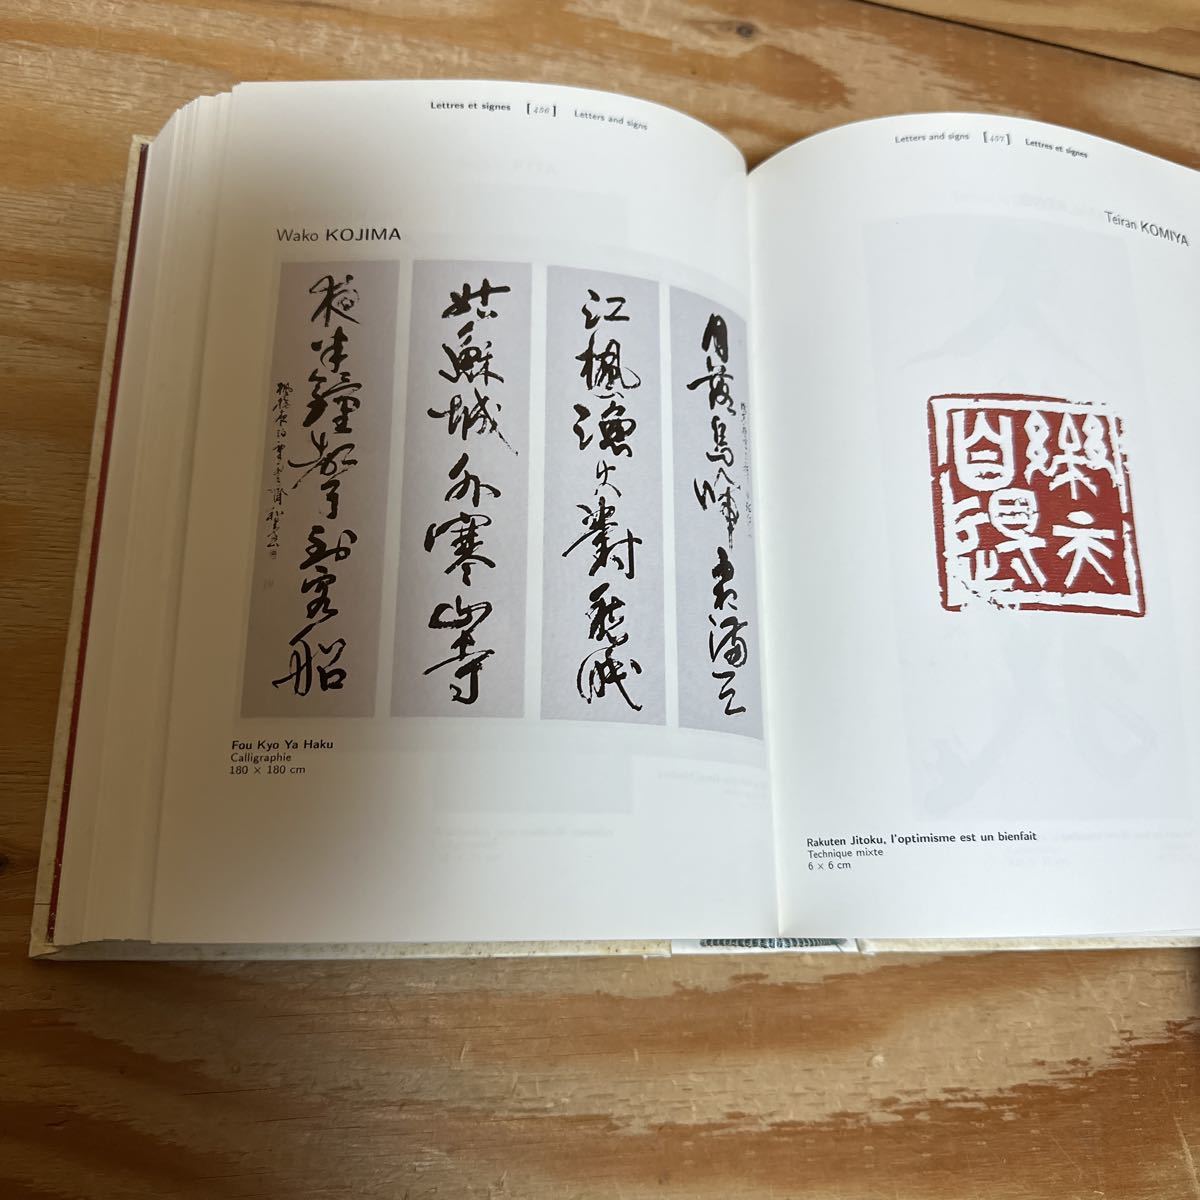 Lettres et signes [456] Letters and signs
Wako KOJIMA
月落烏啼霜満天
江楓漁火對愁眠
姑蘇城外寒山寺
夜半鐘聲到客船
Fou Kyo Ya Haku
Calligraphie
180 × 180 cm
Letters and signs [457] Lettres et signes
Teiran KOMIYA
樂天
自得
Rakuten Jitoku, l'optimisme est un bienfait
Technique mixte
6 × 6 cm